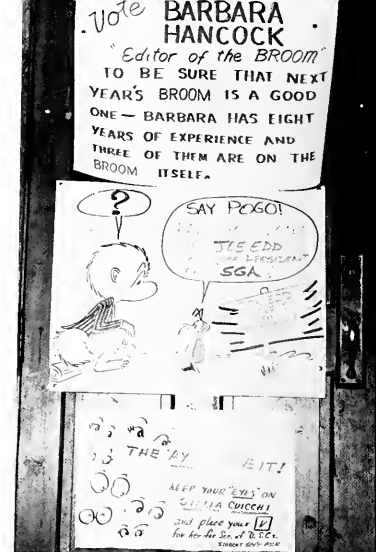 Vote BARBARA
HANCOCK
"Editor of the BROOM"
TO BE SURE THAT NEXT
YEAR'S BROOM IS A GOOD
ONE — BARBARA HAS EIGHT
YEARS OF EXPERIENCE AND
THREE OF THEM ARE ON THE
BROOM ITSELF.
?
SAY POGO!
SGA
THE
IT!
KEEP YOUR "EYES" ON
CUICCHI
and place your V
for her for Sec. of D.S.C.
STUDENT GOV'T ASS'N